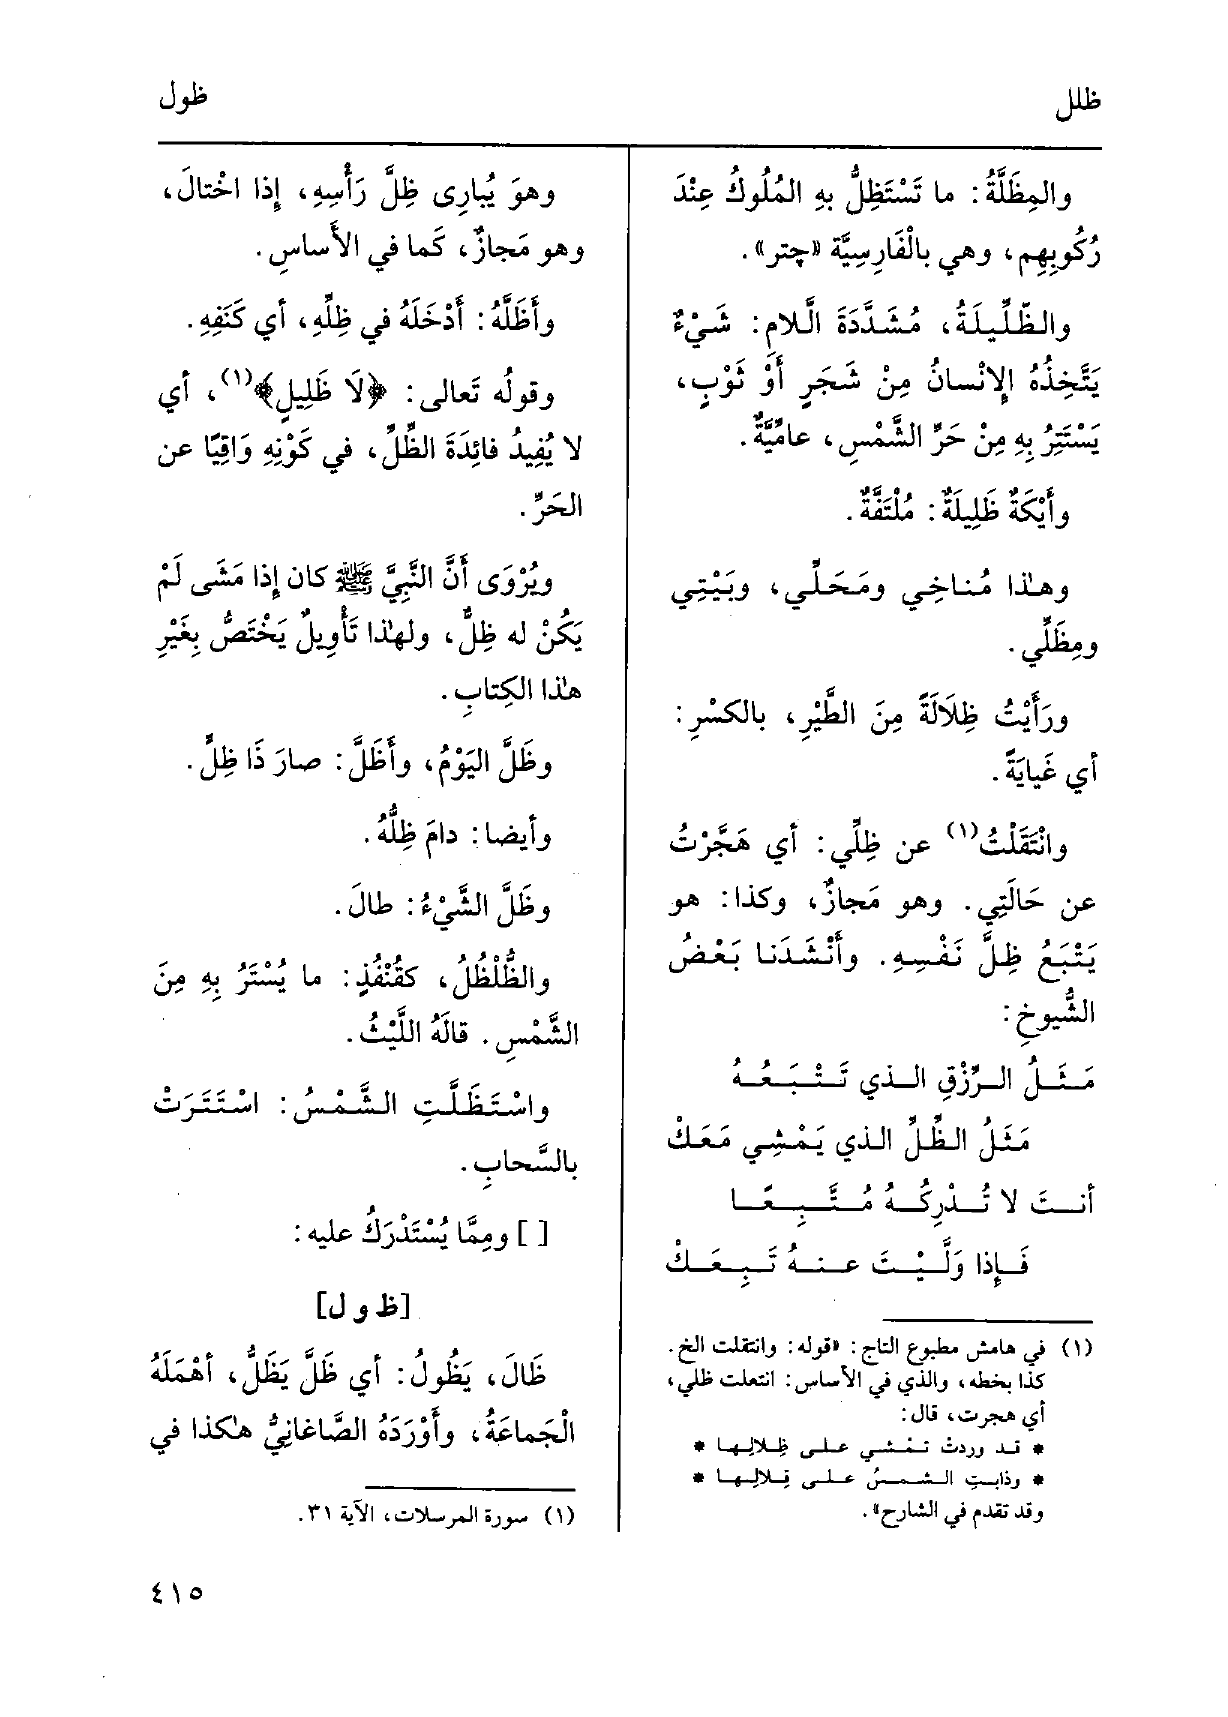 ظلل
ظول
والمِظَلَّةُ: ما تَسْتَظِلُّ بِهِ المُلُوكُ عِنْدَ
رُكُوبِهِم، وهي بالْفَارِسِيَّة «چتر».
والظِّلِّيلَةُ، مُشَدَّدَةَ الَّلام: شَيْءٌ
يَتَّخِذُهُ الإِنْسانُ مِنْ شَجَرٍ أَوْ ثَوْبٍ،
يَسْتَتِرُ بِهِ مِنْ حَرِّ الشَّمْسِ، عامِّيَّةٌ.
وأَيْكَةٌ ظَلِيلَةٌ: مُلْتَفَّةٌ.
وهٰذا مُناخِي ومَحَلِّي، وبَيْتِي
ومِظَلِّي.
ورَأَيْتُ ظِلَالَةً مِنَ الطَّيْرِ، بالكسْرِ:
أي غَيايَةً.
وانْتَقَلْتُ(١) عن ظِلِّي: أي هَجَّرْتُ
عن حَالَتِي. وهو مَجازٌ، وكذا: هو
يَتْبَعُ ظِلَّ نَفْسِهِ. وأَنْشَدَنا بَعْضُ
الشُّيوخِ:
مَثَلُ الرِّزْقِ الذي تَتْبَعُهُ
مَثَلُ الظِّلِّ الذي يَمْشِي مَعَكْ
أنتَ لا تُدْرِكُهُ مُتَّبِعًا
فَإِذا وَلَّيْتَ عنهُ تَبِعَكْ
(١) في هامش مطبوع التاج: «قوله: وانتقلت الخ.
كذا بخطه، والذي في الأساس: انتعلت ظلي،
أي هجرت، قال:
* قد وردتْ تمْشِي على ظِلالِها *
* وذابتِ الشمسُ على قِلالِها *
وقد تقدم في الشارح».
وهوَ يُبارِى ظِلَّ رَأْسِهِ، إذا اخْتالَ،
وهو مَجازٌ، كَما في الأَساسِ.
وأَظَلَّهُ: أَدْخَلَهُ في ظِلِّهِ، أي كَنَفِهِ.
وقولُه تَعالى: ﴿لَا ظَلِيلٍ﴾(١)، أي
لا يُفِيدُ فائِدَةَ الظِّلِّ، في كَوْنِهِ وَاقِيًا عن
الحَرِّ.
ويُرْوَى أَنَّ النَّبِيَّ ﷺ كان إذا مَشَى لَمْ
يَكُنْ له ظِلٌّ، ولهٰذا تَأْوِيلٌ يَخْتَصُّ بِغَيْرِ
هٰذا الكِتابِ.
وظَلَّ اليَوْمُ، وأَظَلَّ: صارَ ذَا ظِلٍّ.
وأيضا: دامَ ظِلُّهُ.
وظَلَّ الشَّيْءُ: طالَ.
والظُّلْظُلُ، كقُنْفُذٍ: ما يُسْتَرُ بِهِ مِنَ
الشَّمْسِ. قالَهُ اللَّيْثُ.
واسْتَظَلَّتِ الشَّمْسُ: اسْتَتَرَتْ
بالسَّحابِ.
[ ] ومِمَّا يُسْتَدْرَكُ عليه:
[ظ و ل]
ظَالَ، يَظُولُ: أي ظَلَّ يَظَلُّ، أهْمَلَهُ
الْجَماعَةُ، وأَوْرَدَهُ الصَّاغانِيُّ هٰكذا في
(١) سورة المرسلات، الآية ٣١.
٤١٥